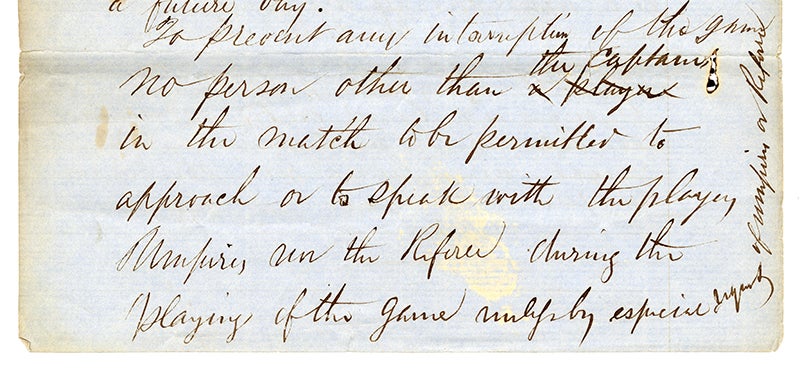 a future day.
To prevent any interruption of the game
the Captains
no person other than a player
in the match to be permitted to
approach or to speak with the players,
Umpires, nor the Referee during the
playing of the game unless by especial request
of umpires or Referee